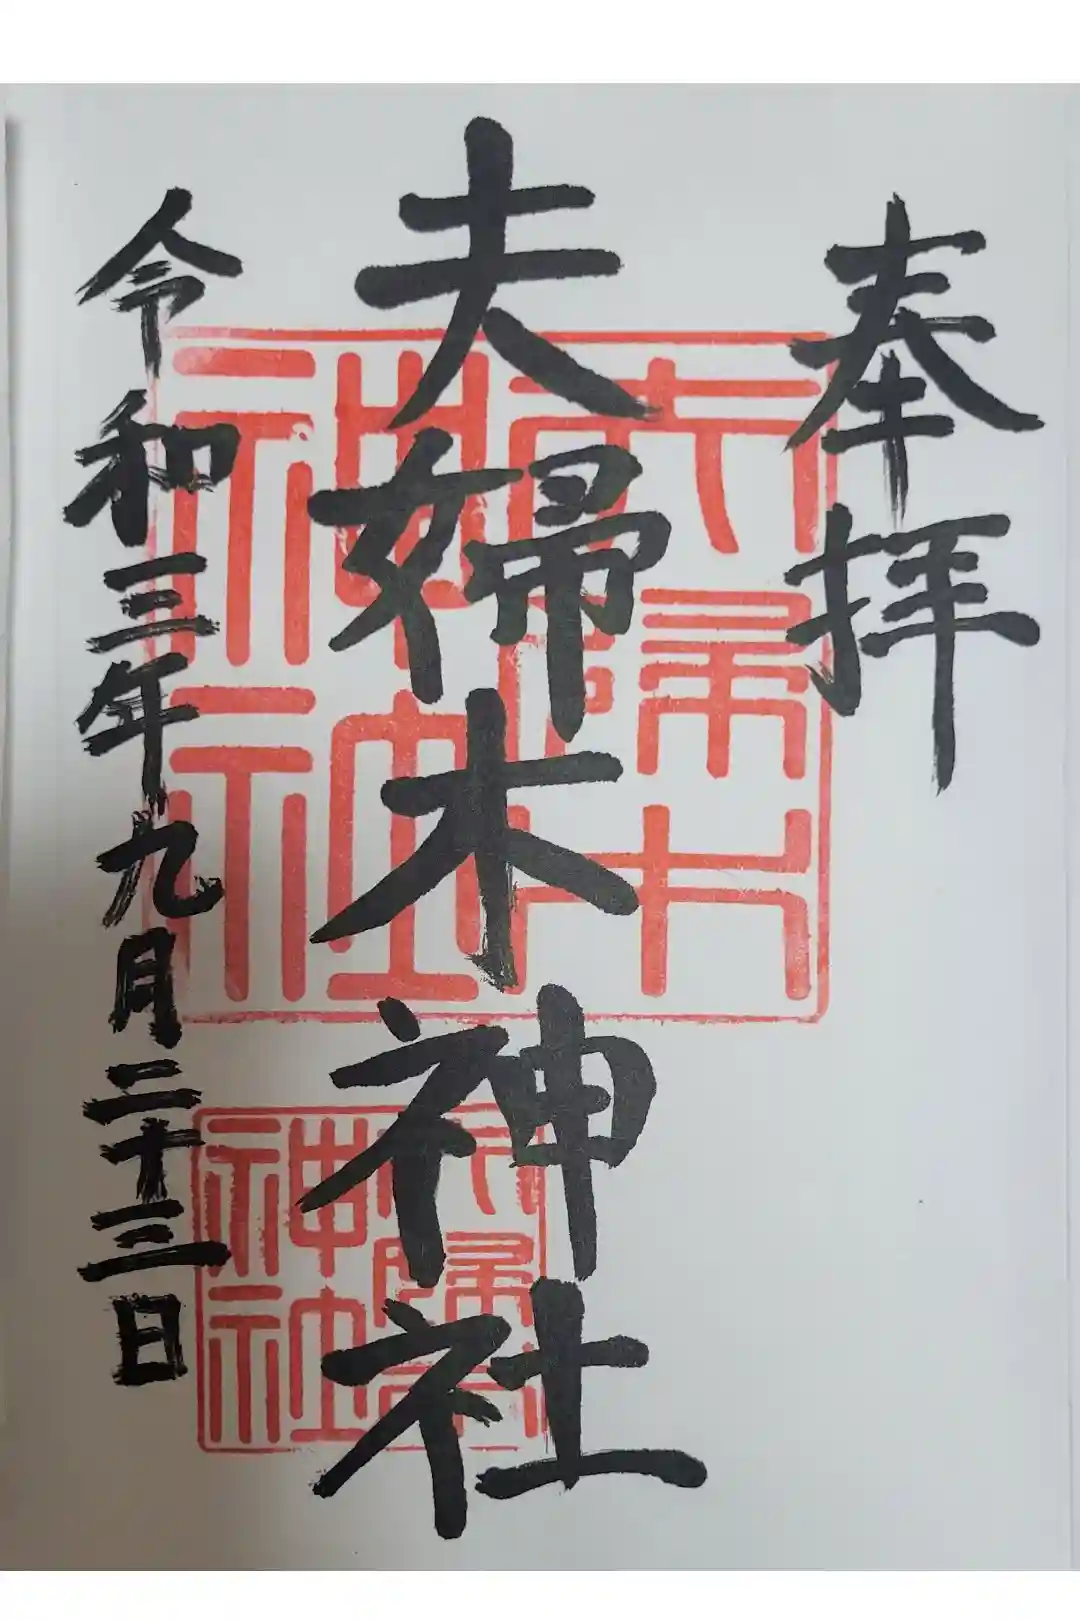 奉拝
夫婦木神社
令和三年九月二十三日
夫婦木神社
夫婦木神社